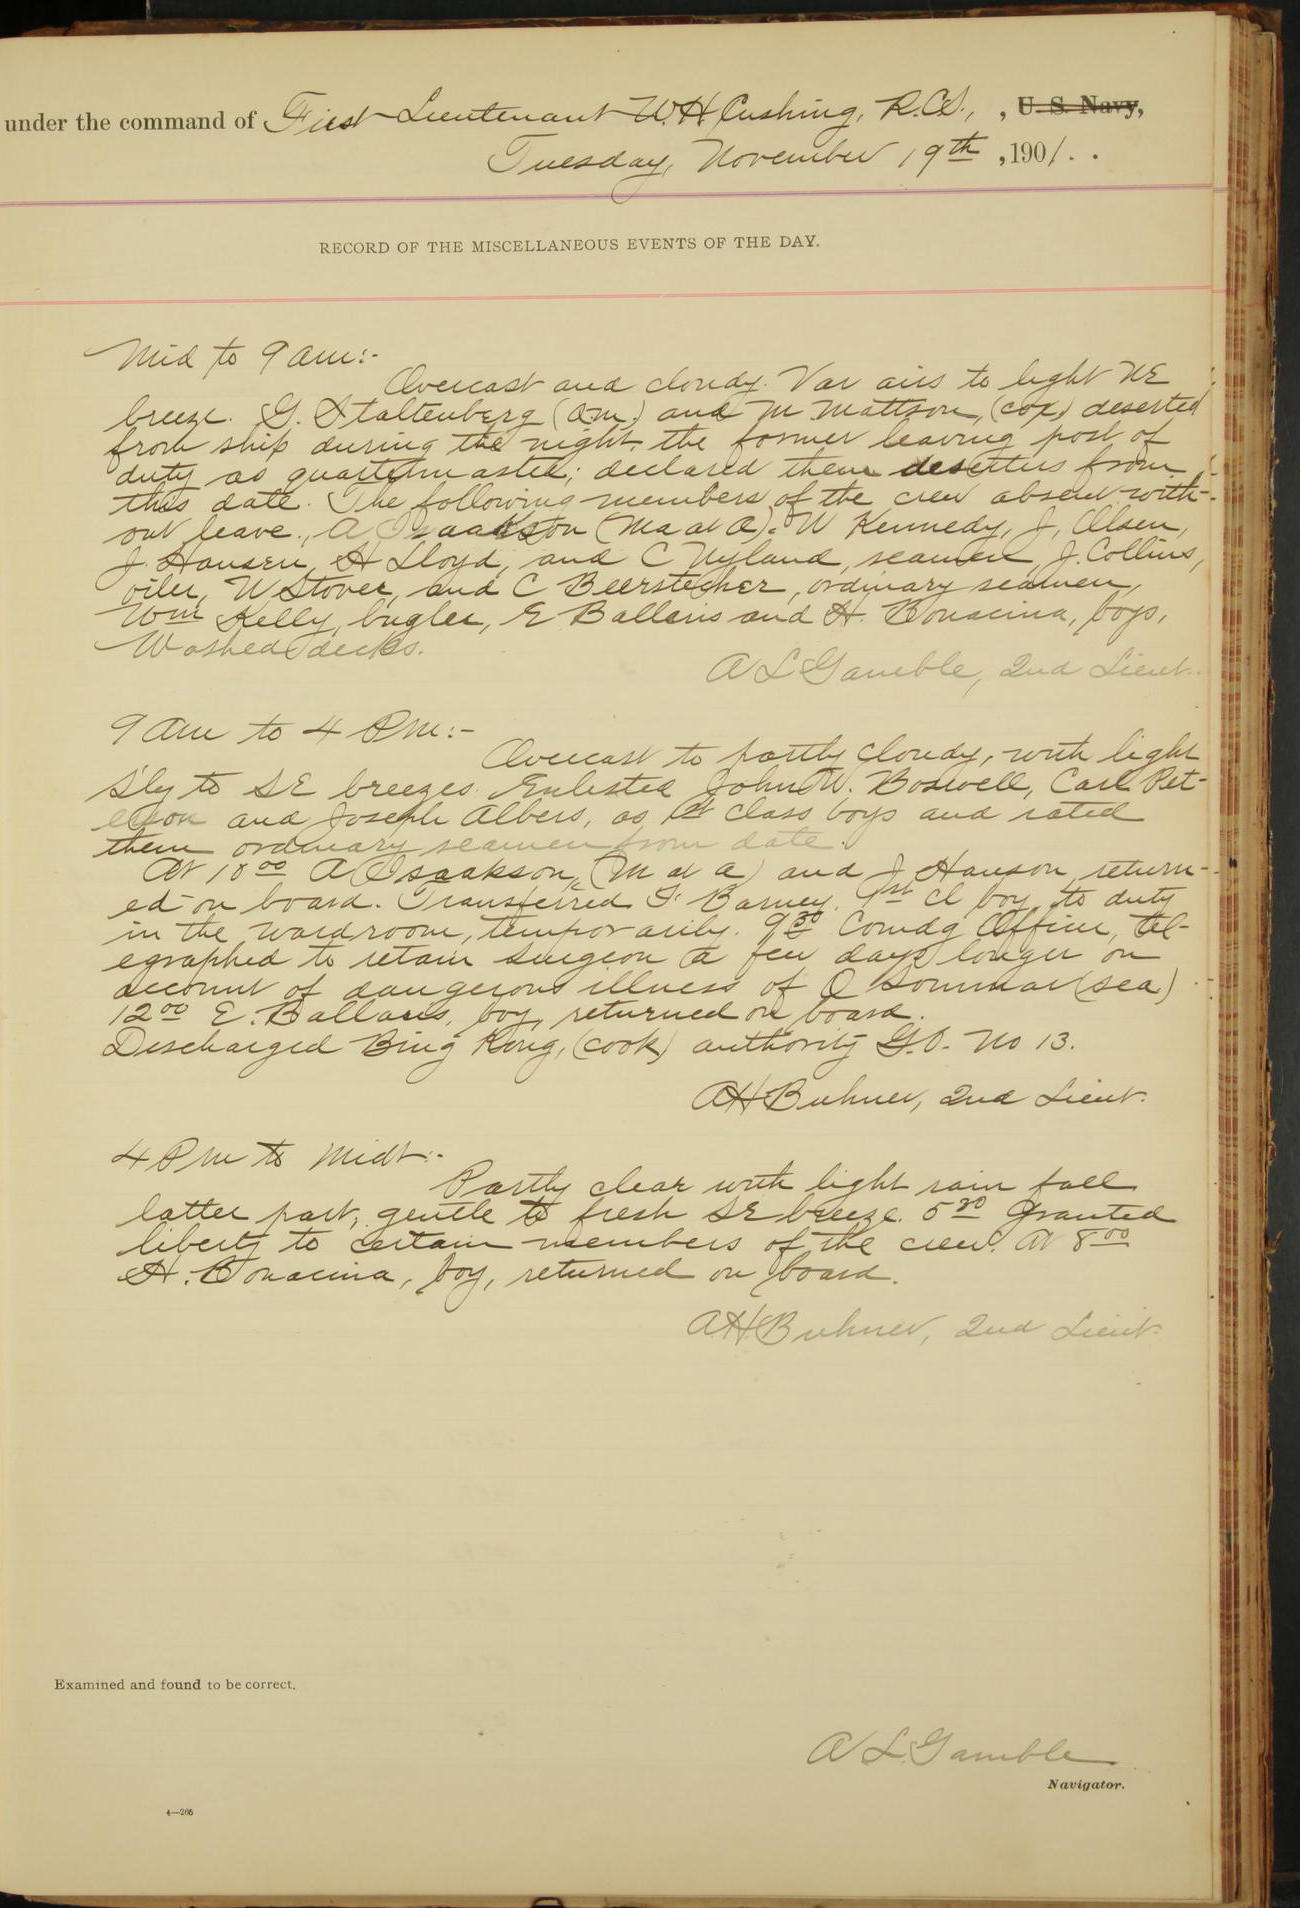 under the command of First Lieutenant W.H. Cushing, R.C.S., , U. S. Navy,
Tuesday, November 19th , 1901. .
RECORD OF THE MISCELLANEOUS EVENTS OF THE DAY.
Mid to 9 am:-
Overcast and cloudy. Var airs to light NE
breeze. G. Staltenberg (Q.m.) and M Mattson, (cox.) deserted
from ship during the night, the former leaving post of
duty as quartermaster; declared them deserters from
this date. The following members of the crew absent with-
out leave., A Isaakson (Ma at A). W Kennedy, J, Olsen,
J. Hansen, H Lloyd, and C Nyland, seamen J. Collins,
oiler, W Stover, and C Beerstecher, ordinary seamen,
Wm Kelly, bugler, E Ballaris and H. Bonacina, boys.
Washed decks.
A L Gamble, 2nd Lieut.
9 am to 4 Pm:-
Overcast to partly cloudy, with light
S'ly to SE breezes. Enlisted John W. Boswell, Carl Pet-
erson and Joseph Albers, as 1st class boys and rated
them ordinary seamen from date.
At 10 00 A Isaakson, (M at a) and J Hanson return-
ed on board. Transferred F. Barney, 1st cl boy to duty
in the wardroom, temporarily. 9 30 Comdg Officer, tel-
egraphed to retain surgeon a few days longer on
account of dangerous illness of O Sommar (sea)
12 00 E. Ballaris, boy, returned on board.
Descharged Bing Kong, (cook) authority G.O. No 13.
AH Buhner, 2nd Lieut.
4 Pm to Midt:-
Partly clear with light rain fall
latter part, gentle to fresh SE breeze. 5 30 Granted
liberty to certain members of the crew. At 8 00
H. Bonacina, boy, returned on board.
AH Buhner, 2nd Lieut.
Examined and found to be correct.
A L Gamble
Navigator.
4—265